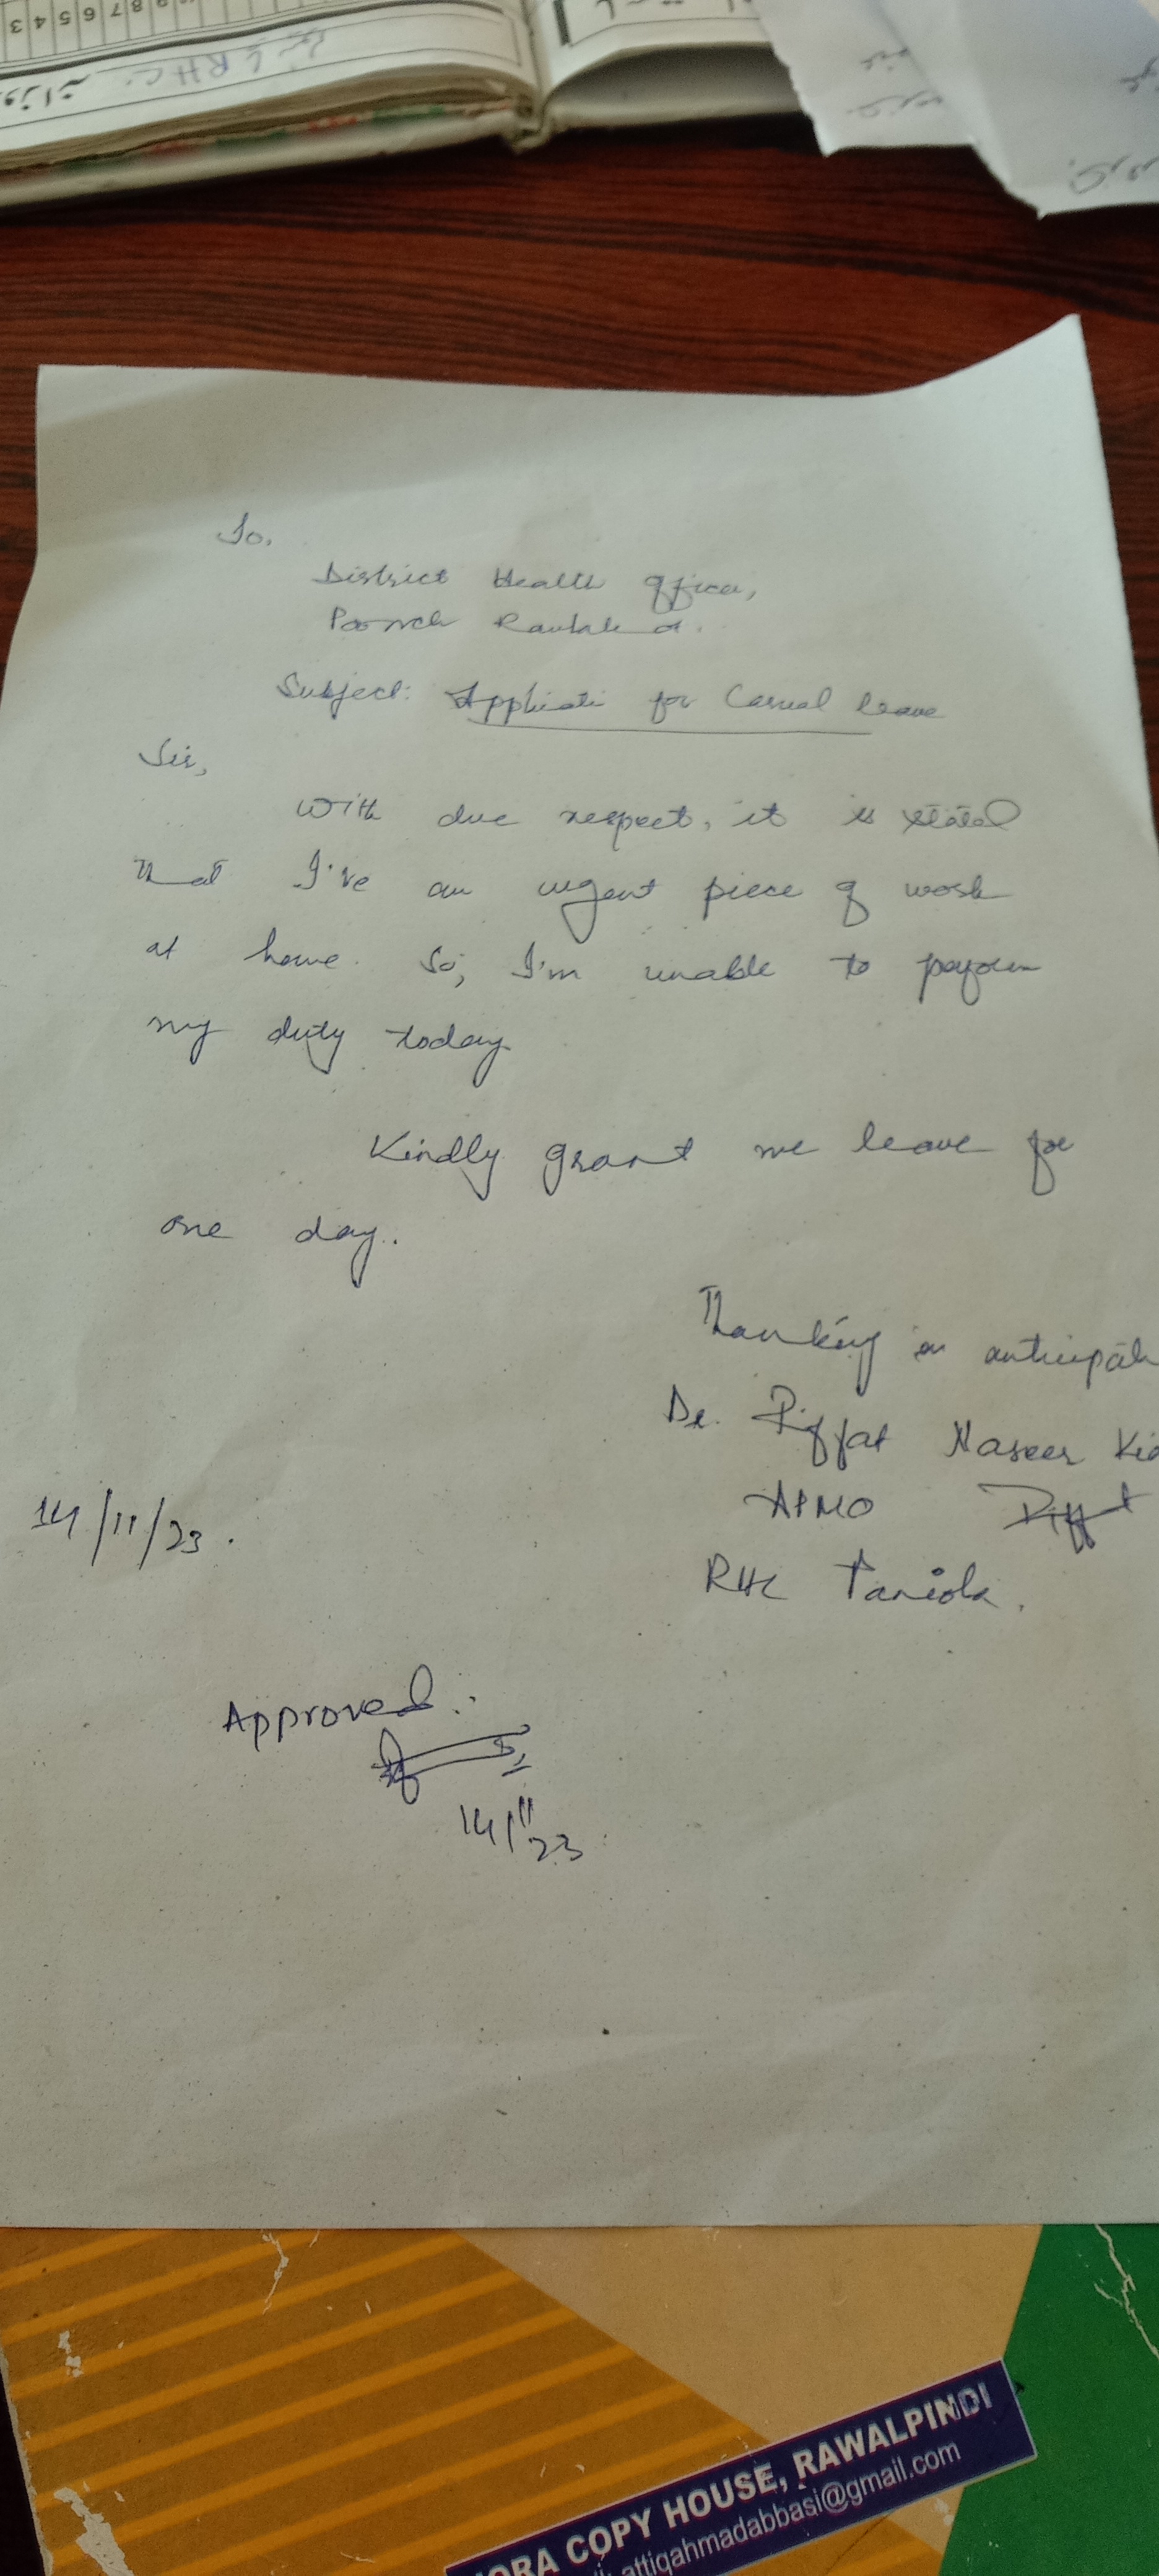 3 4 5 6 7 8
RHC
To,
District Health Officer,
Poonch
Subject: Applicati for Casual leave
Sir,
With due respect, it is stated
that I've an urgent piece of work
at home. So, I'm unable to perform
my duty today
Kindly grant me leave for
one day.
Thanking in anticipati
Dr. Riffat Naseer
14/11/23.
RHC
Approved.
14/11/23
ORA COPY HOUSE, RAWALPINDI
attiqahmadabbasi@gmail.com